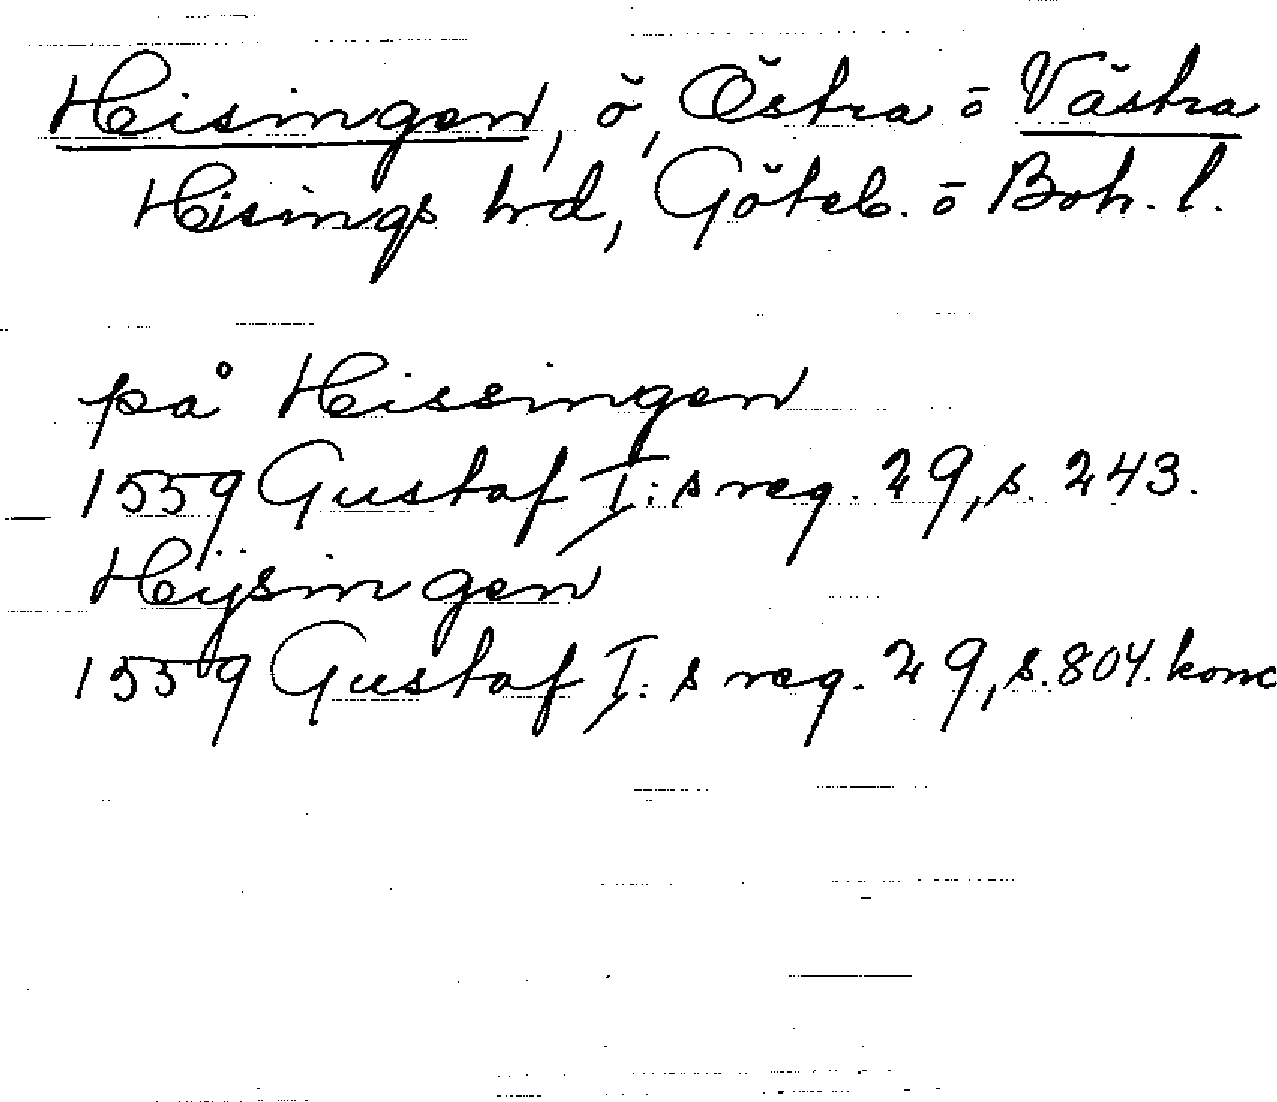 Hisingen, ö, Östra o Västra
Hisings hrd, Göteb. o Boh. l.
på Hissingen
1559 Gustaf I:s reg. 29, s. 243.
Hijsingen
1559 Gustaf I:s reg. 29, s. 804. konc